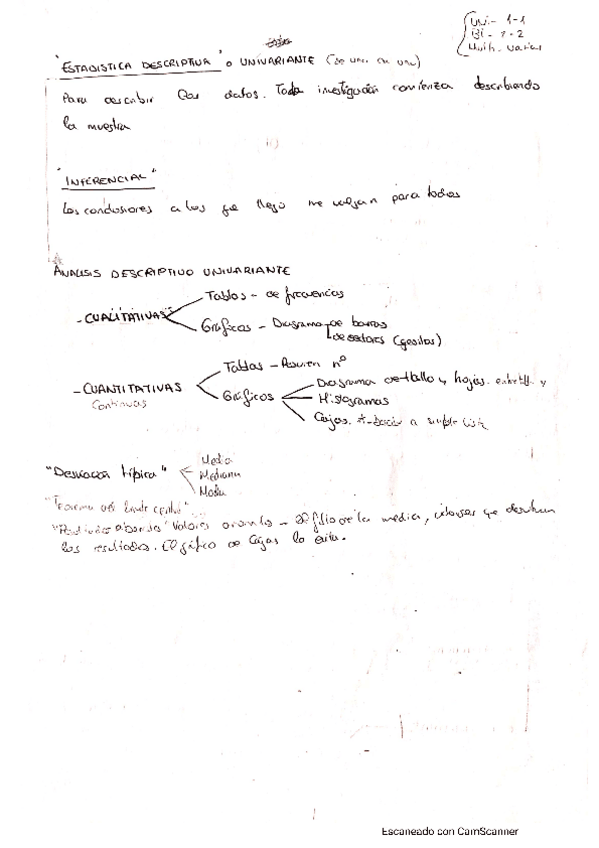 Uni- 1-1
Bi- 1-2
Multi- varias
"ESTADISTICA DESCRIPTIVA" o UNIVARIANTE (de uno en uno)
Para describir los datos. Toda investigación comienza describiendo
la muestra
"INFERENCIAL"
Las conclusiones a las que llego me valgan para todos
ANALISIS DESCRIPTIVO UNIVARIANTE
- CUALITATIVAS
Tablas - de frecuencias
Gráficas - Diagrama de barras
de sectores (quesitos)
- CUANTITATIVAS
Continuas
Tablas - Resumen nº
Gráficos
Diagrama de tallo y hojas.
Histogramas
Cajas. a simple vista
"Desviación típica"
Media
Mediana
Moda
"Teorema del limite central"
Valores anomalos - de la media, valores que desvirtuan
los resultados. El gráfico de Cajas lo evita.
Escaneado con CamScanner